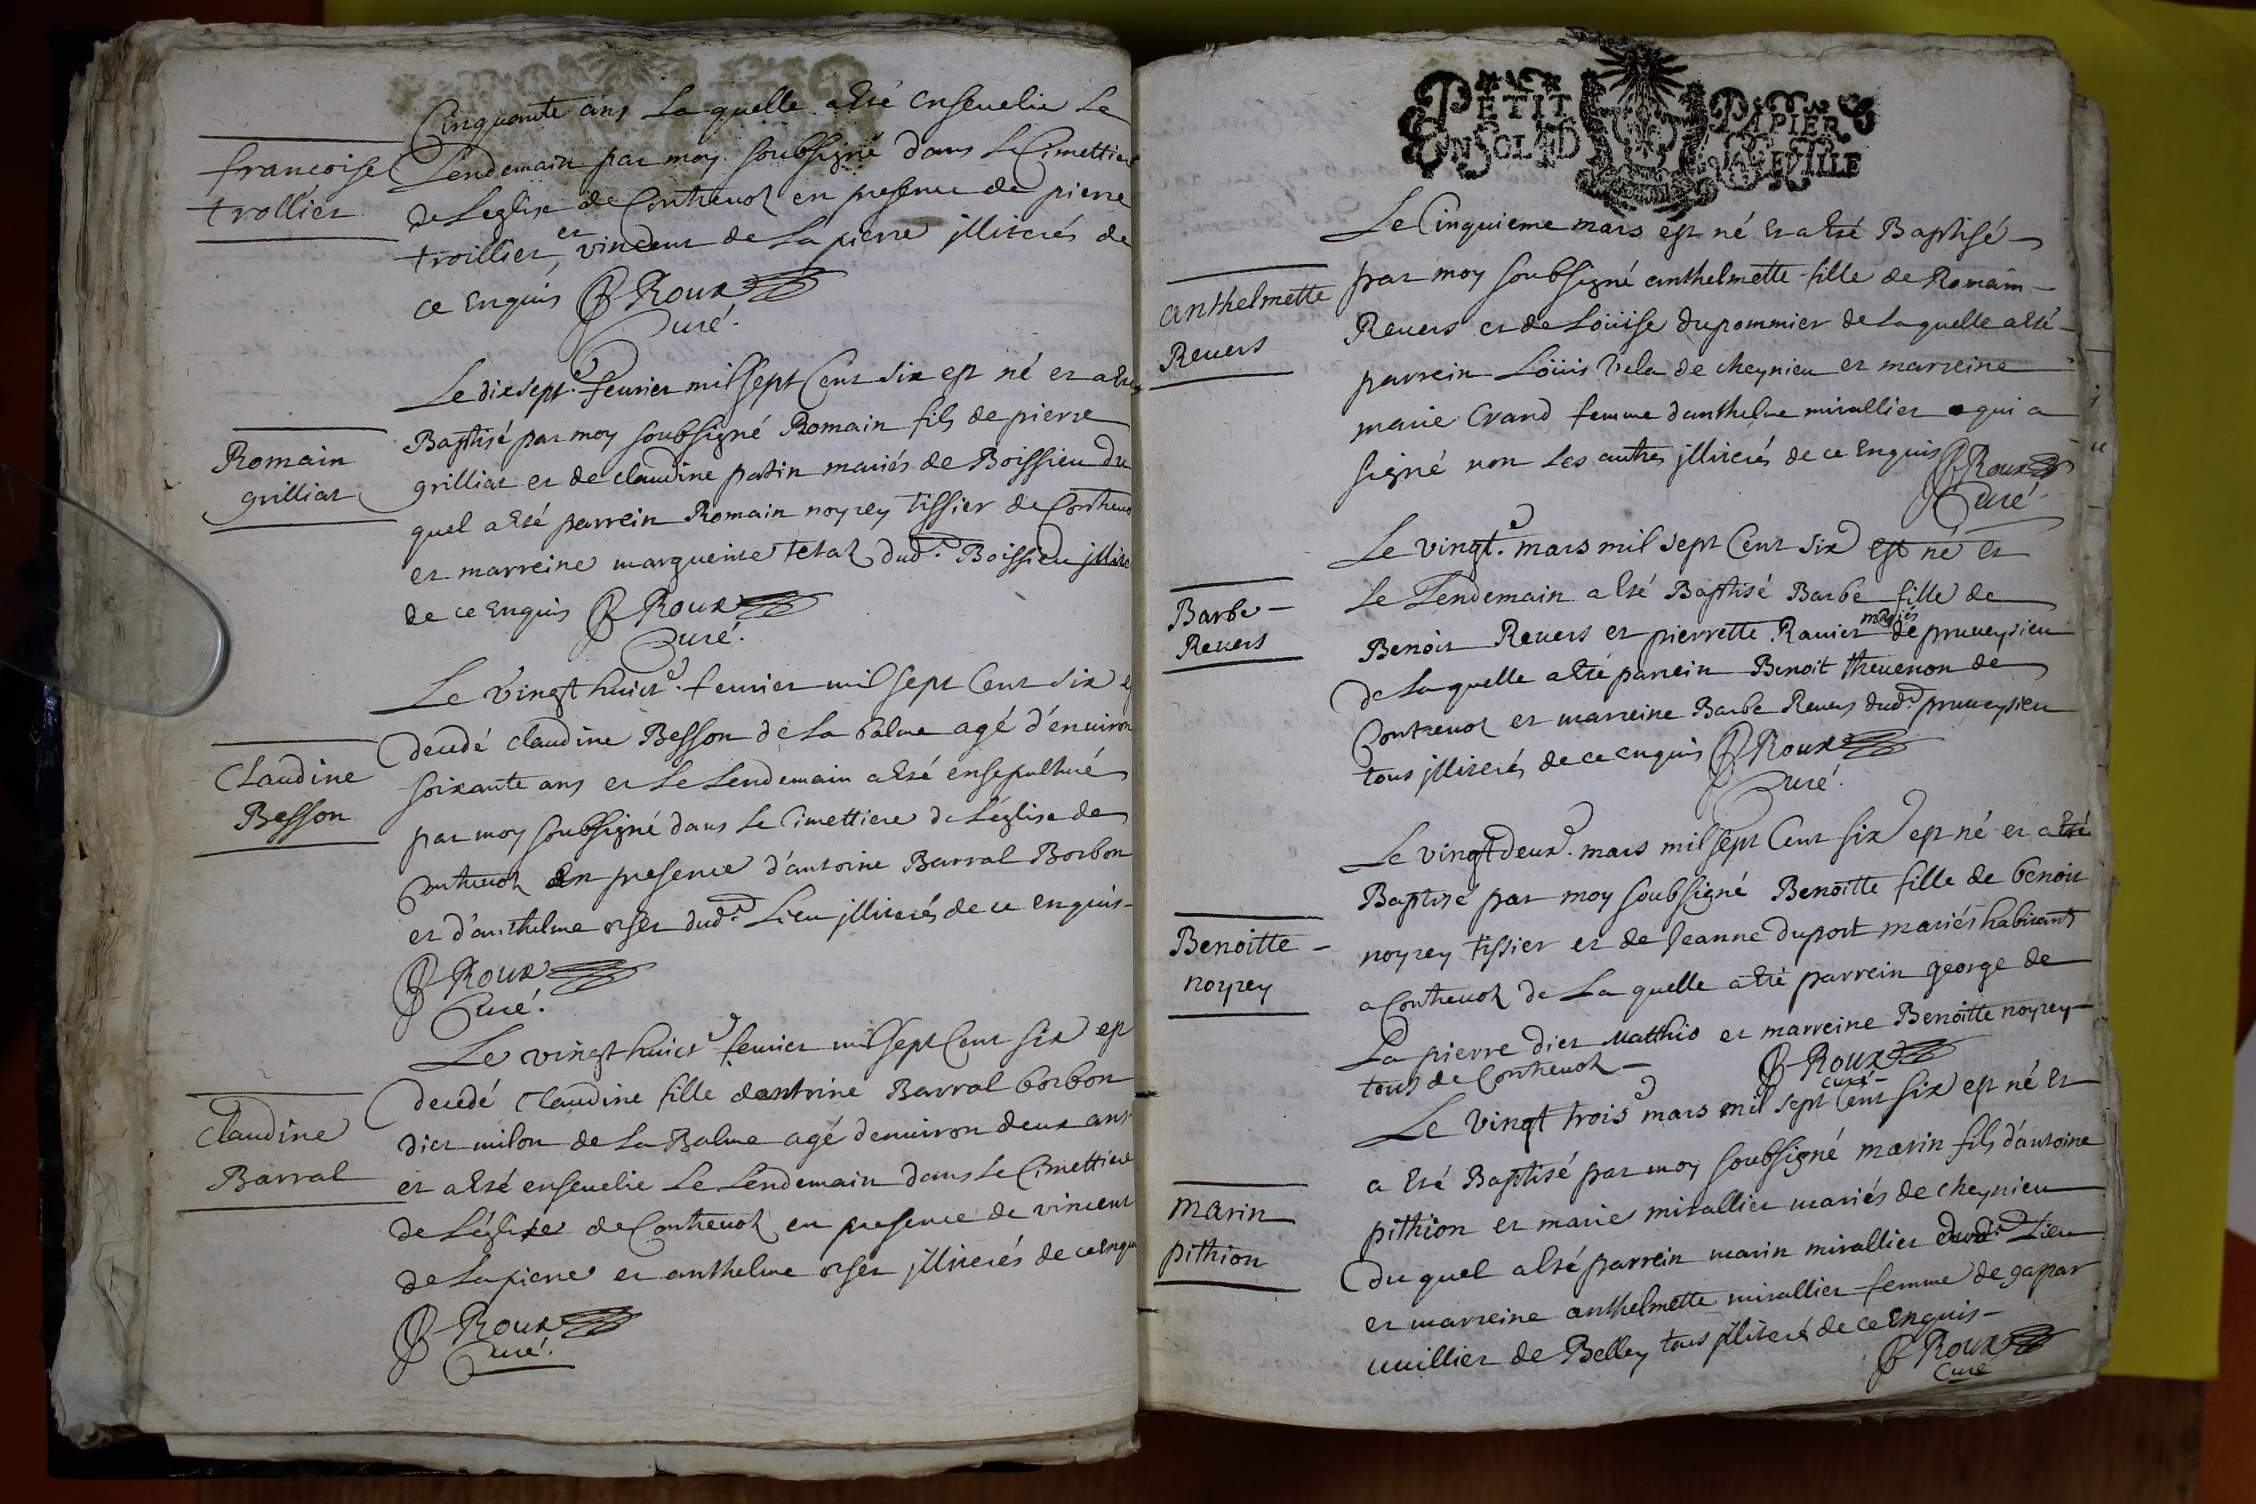 Cinquante ans Laquelle a esté ensevelie Le
francoise
trollier
Lendemain par moy soubsigné dans Le Cimettiere
de Leglise de Contrevoz en presence de pierre
troillier et vincent de La pierre jlliterés de
ce Enquis B Roux
Curé.
Le dixsept.e fevrier mil sept Cent six est né et a esté
Romain
grilliat
Baptisé par moy soubsigné Romain fils de pierre
grilliat et de claudine patin mariés de Boissieu du
quel a esté parrein Romain noyrey tissier de Contrevo
et marreine marguerite tetaz dud.t Boissieu jllite
de ce Enquis B Roux
Curé.
Le vingt huict.e fevrier mil sept Cent six e
Claudine
Besson
decedé claudine Besson de La balme agé d'environ
soixante ans et Le Lendemain a esté ensepulturé
par moy soubsigné dans Le Cimettiere de L'église de
Contrevoz En presence d'antoine Barral Borbon
et d'anthelme orset dud.t Lieu jlliterés de ce enquis -
B Roux
Curé.
Le vingt huict.e fevrier mil sept Cent six est
Claudine
Barral
decedé Claudine fille dantoine Barral borbon
dict milon de La Balme agé denviron deux ans
et a esté ensevelie Le Lendemain dans Le Cimettiere
de L'église de Contrevoz en presence de vincent
de La pierre et anthelme orset jlliterés de ce enqui
B Roux
Curé.
PETIT PAPIER
UN SOL LA FEUILLE
Le Cinquieme mars est né Et a Esté Baptisé
anthelmette
Revers
par moy soubsigné anthelmette fille de Romain
Revers et de Loüise dupommier de Laquelle a esté
parrein Loüis Vela de cheynieu et marreine
marie Crand femme d'anthelme mirallier qui a
signé non Les autres jlliterés de ce Enquis B Roux
Curé
Le vingt.e mars mil sept Cent six est né et
Barbe
Revers
Le Lendemain a Esté Baptisé Barbe fille de
Benoit Revers et pierrette Ravier mariés de pruveysieu
de Laquelle a esté parrein Benoit thevenon de
Contrevoz et marreine Barbe Revers dud.t pruveysieu
tous jlliterés de ce enquis B Roux
Curé.
Le vingt deux.e mars mil sept Cent six est né et a Esté
Benoitte
noyrey
Baptisé par moy soubsigné Benoitte fille de benoit
noyrey tissier et de Jeanne duport mariés habitants
a Contrevoz de Laquelle a esté parrein george de
La pierre dict Matthio et marreine Benoitte noyrey
tous de Contrevoz B Roux
curé
Le vingt trois.e mars mil sept Cent six est né Et
Marin
pithion
a Esté Baptisé par moy soubsigné marin fils d'antoine
pithion et marie mirallier mariés de cheynieu
du quel a esté parrein marin mirallier dud.t Lieu
et marreine anthelmette mirallier femme de gapar
vuillier de Belley tous jlliterés de ce Enquis
B Roux
Curé